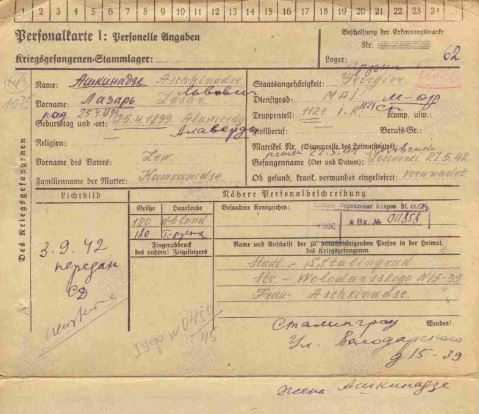 1 2 3 4 5 6 7 8 9 10 11 12 13 14 15 16 17 18 19 20 21 22 23 24 25
Personalkarte I: Personelle Angaben
Beschriftung der Erkennungsmarke
Nr.
Kriegsgefangenen-Stammlager:
Lager:
62
Des Kriegsgefangenen
Name: Ашкинадзе Aschkinadse
Львович
Vorname: Лазарь Lasar
Geburtstag und -ort: 25.4.1899. Alawerdy
Алаверды
Religion:
Vorname des Vaters: Lew
Familienname der Mutter: Kumkinidse
Staatsangehörigkeit:
Dienstgrad: Major
м-ор
Truppenteil: 1121 I.R. Komp. usw.
Zivilberuf: Berufs-Gr.
Matrikel Nr. (Stammrolle des Heimatstaates)
Gefangennahme (Ort und Datum): 27.5.42
Ob gesund, krank, verwundet eingeliefert: verwundet
Lichtbild
Nähere Personalbeschreibung
Größe Haarfarbe
Besondere Kennzeichen:
180 blond
180
Fingerabdruck
des rechten Zeigefingers
Name und Anschrift der zu benachrichtigenden Person in der Heimat
des Kriegsgefangenen
Stadt - Stalingrad
Str. - Wolodarskogo N15-39
Frau Aschkinadse.
3.9.42
передан
СД
Сталинград
Wenden!
Ул. Володарского
д 15-39
жена Ашкинадзе